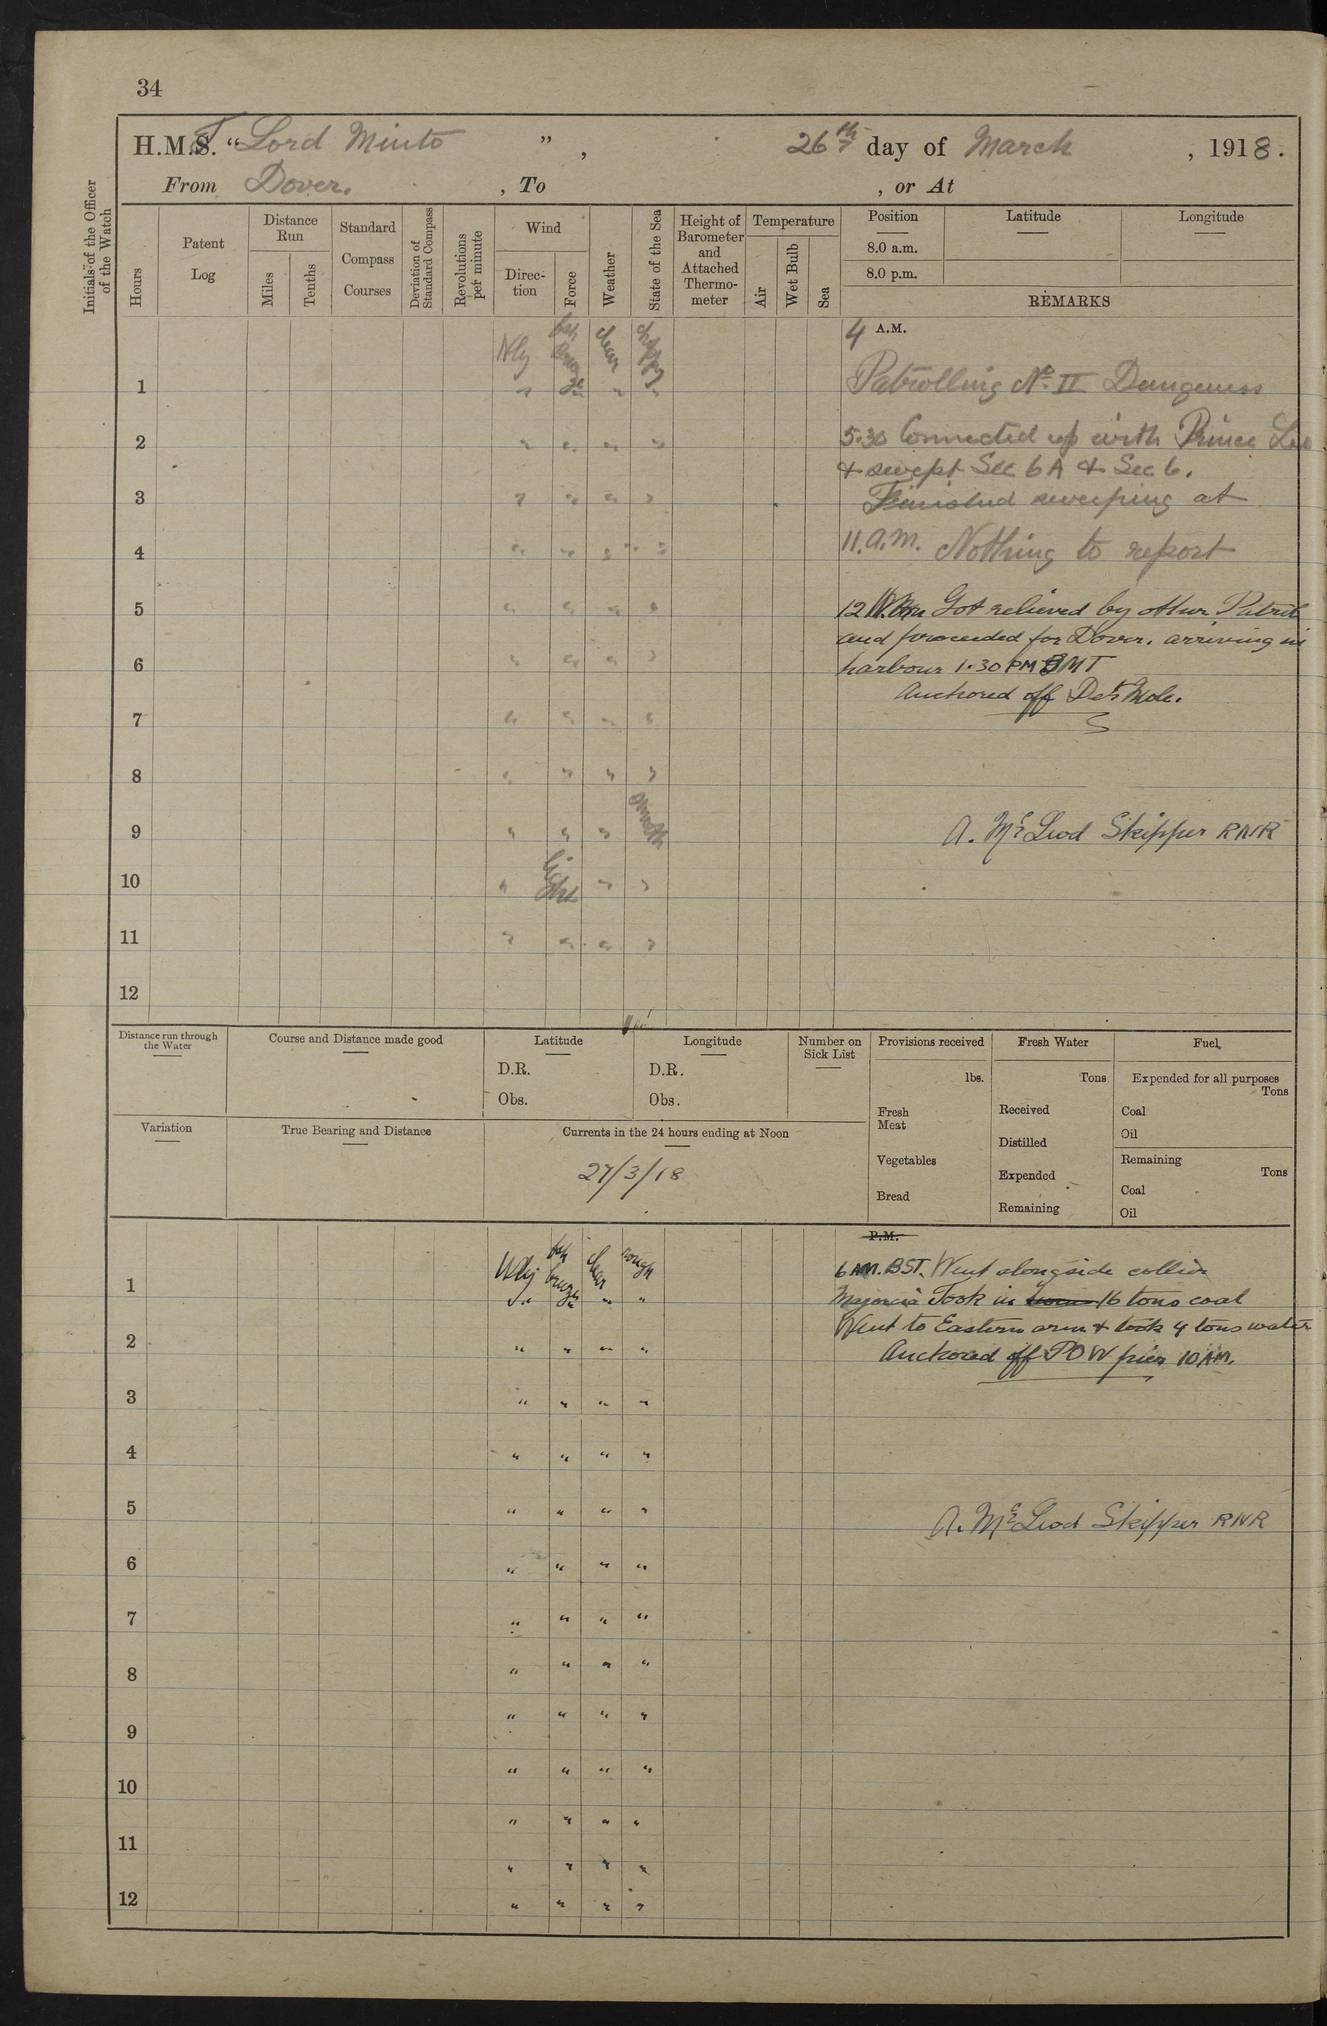 34
H.M.T. "Lord Minto", 26th day of March, 1918.
From Dover. , To , or At
Initials of the Officer of the Watch
Hours
Patent Log
Distance Run
Miles
Tenths
Standard Compass Courses
Deviation of Standard Compass
Revolutions per minute
Wind
Direction
Force
Weather
State of the Sea
Height of Barometer and Attached Thermometer
Temperature
Air
Wet Bulb
Sea
Position
8.0 a.m.
8.0 p.m.
Latitude
Longitude
REMARKS
4 A.M.
Nly fsh breeze clear choppy
1 " " " "
Patrolling No. II Dungeness
2 " " " "
5.30 Connected up with Prince Leo
& swept Sec 6A & Sec 6.
3 " " " "
Finished sweeping at
4 " " " "
11.A.M. Nothing to report
5 " " " "
12 Noon Got relieved by other Patrol
and proceeded for Dover. arriving in
6 " " " "
harbour 1.30 PM BMT
Anchored off Mole.
7 " " " "
8 " " " "
smooth
9 " " "
A. McLeod Skipper RNR
light
10 " " "
11 " " " "
12
Distance run through the Water
Course and Distance made good
Latitude
D.R.
Obs.
Longitude
D.R.
Obs.
Number on Sick List
Provisions received
lbs.
Fresh Meat
Vegetables
Bread
Fresh Water
Tons
Received
Distilled
Expended
Remaining
Fuel
Expended for all purposes
Tons
Coal
Oil
Remaining
Tons
Coal
Oil
Variation
True Bearing and Distance
Currents in the 24 hours ending at Noon
27/3/18
P.M.
Wly fsh breeze clear rough
6 AM. BST. Went alongside collier
1 " " " "
Took in 16 tons coal
Went to Eastern arm & took 4 tons water
2 " " " "
Anchored off POW pier 10 AM.
3 " " " "
4 " " " "
5 " " " "
A. McLeod Skipper RNR
6 " " " "
7 " " " "
8 " " " "
9 " " " "
10 " " " "
11 " " " "
" " " "
12 " " " "